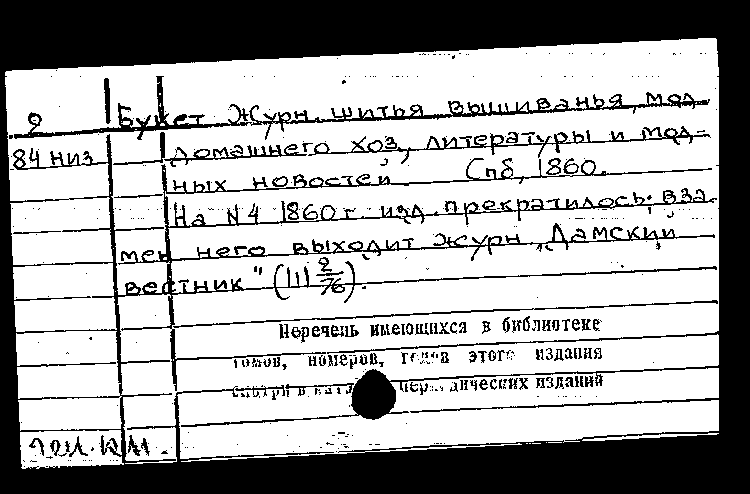 9 Букет. Журн. шитья вышиванья, мод
84 низ домашнего хоз., литературы и мод-
ных новостей. Спб, 1860.
На N 4 1860 г. изд. прекратилось; вза-
мен него выходит журн. „Дамский
вестник" (III 2/76).
Перечень имеющихся в библиотеке
томов, номеров, годов этого издания
смотри в периодических изданий